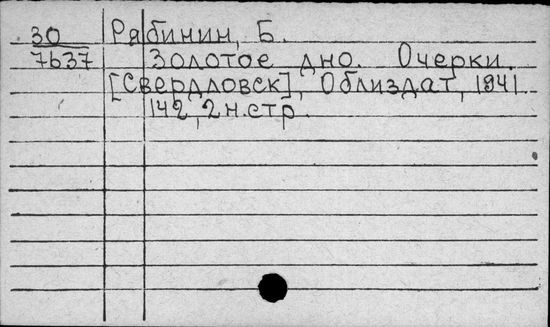 30 Рябинин, Б.
7637 Золотое дно. Очерки.
[Свердловск], Облиздат, 1941
142, 2 н.стр.